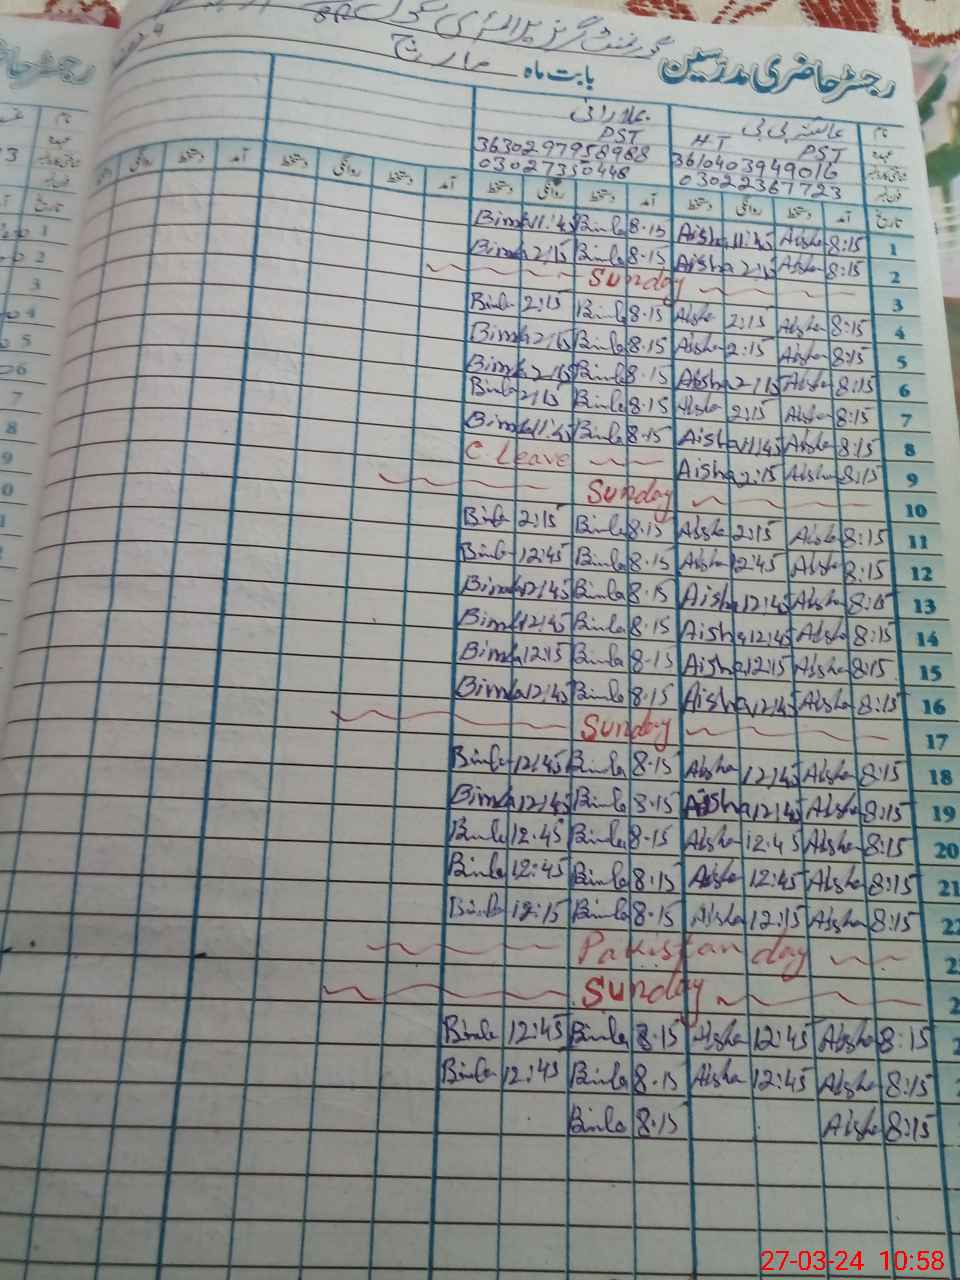 رجسٹر حاضری مدرسین گورنمنٹ گرلز پرائمری سکول
بابت ماہ مارچ
نام عائشہ بی بی
PST HT PST
3610403949016 3630297958968
03022367723 03027350448
تاریخ آمد دستخط روانگی دستخط آمد دستخط روانگی دستخط آمد دستخط روانگی دستخط آمد دستخط روانگی
1 8:15 Aisha 11:45 Aisha 8.15 Bimla 11:45 Bimla
2 8:15 Aisha 2:15 Aisha 8.15 Bimla 2:15 Bimla
3 Sunday
4 8:15 Aisha 2:15 Aisha 8.15 Bimla 2:15 Bimla
5 8:15 Aisha 2:15 Aisha 8.15 Bimla 2:15 Bimla
6 8:15 Aisha 2:15 Aisha 8.15 Bimla 2:15 Bimla
7 8:15 Aisha 2:15 Aisha 8.15 Bimla 2:15 Bimla
8 8:15 Aisha 11:45 Aisha 8.15 Bimla 11:45 Bimla
9 8:15 Aisha 2:15 Aisha C. Leave
10 Sunday
11 8:15 Aisha 2:15 Aisha 8.15 Bimla 2:15 Bimla
12 8:15 Aisha 12:45 Aisha 8.15 Bimla 12:45 Bimla
13 8:15 Aisha 12:45 Aisha 8.15 Bimla 12:45 Bimla
14 8:15 Aisha 12:45 Aisha 8.15 Bimla 12:45 Bimla
15 8:15 Aisha 12:15 Aisha 8.15 Bimla 12:15 Bimla
16 8:15 Aisha 12:45 Aisha 8.15 Bimla 12:45 Bimla
17 Sunday
18 8:15 Aisha 12:45 Aisha 8.15 Bimla 12:45 Bimla
19 8:15 Aisha 12:45 Aisha 8.15 Bimla 12:45 Bimla
20 8:15 Aisha 12:45 Aisha 8.15 Bimla 12.45 Bimla
21 8:15 Aisha 12:45 Aisha 8.15 Bimla 12:45 Bimla
22 8:15 Aisha 12:15 Aisha 8.15 Bimla 12:15 Bimla
Pakistan day
Sunday
8:15 Aisha 12:45 Aisha 8.15 Bimla 12:45 Bimla
8:15 Aisha 12:45 Aisha 8.15 Bimla 12:45 Bimla
8:15 Aisha 8.15 Bimla
27-03-24 10:58